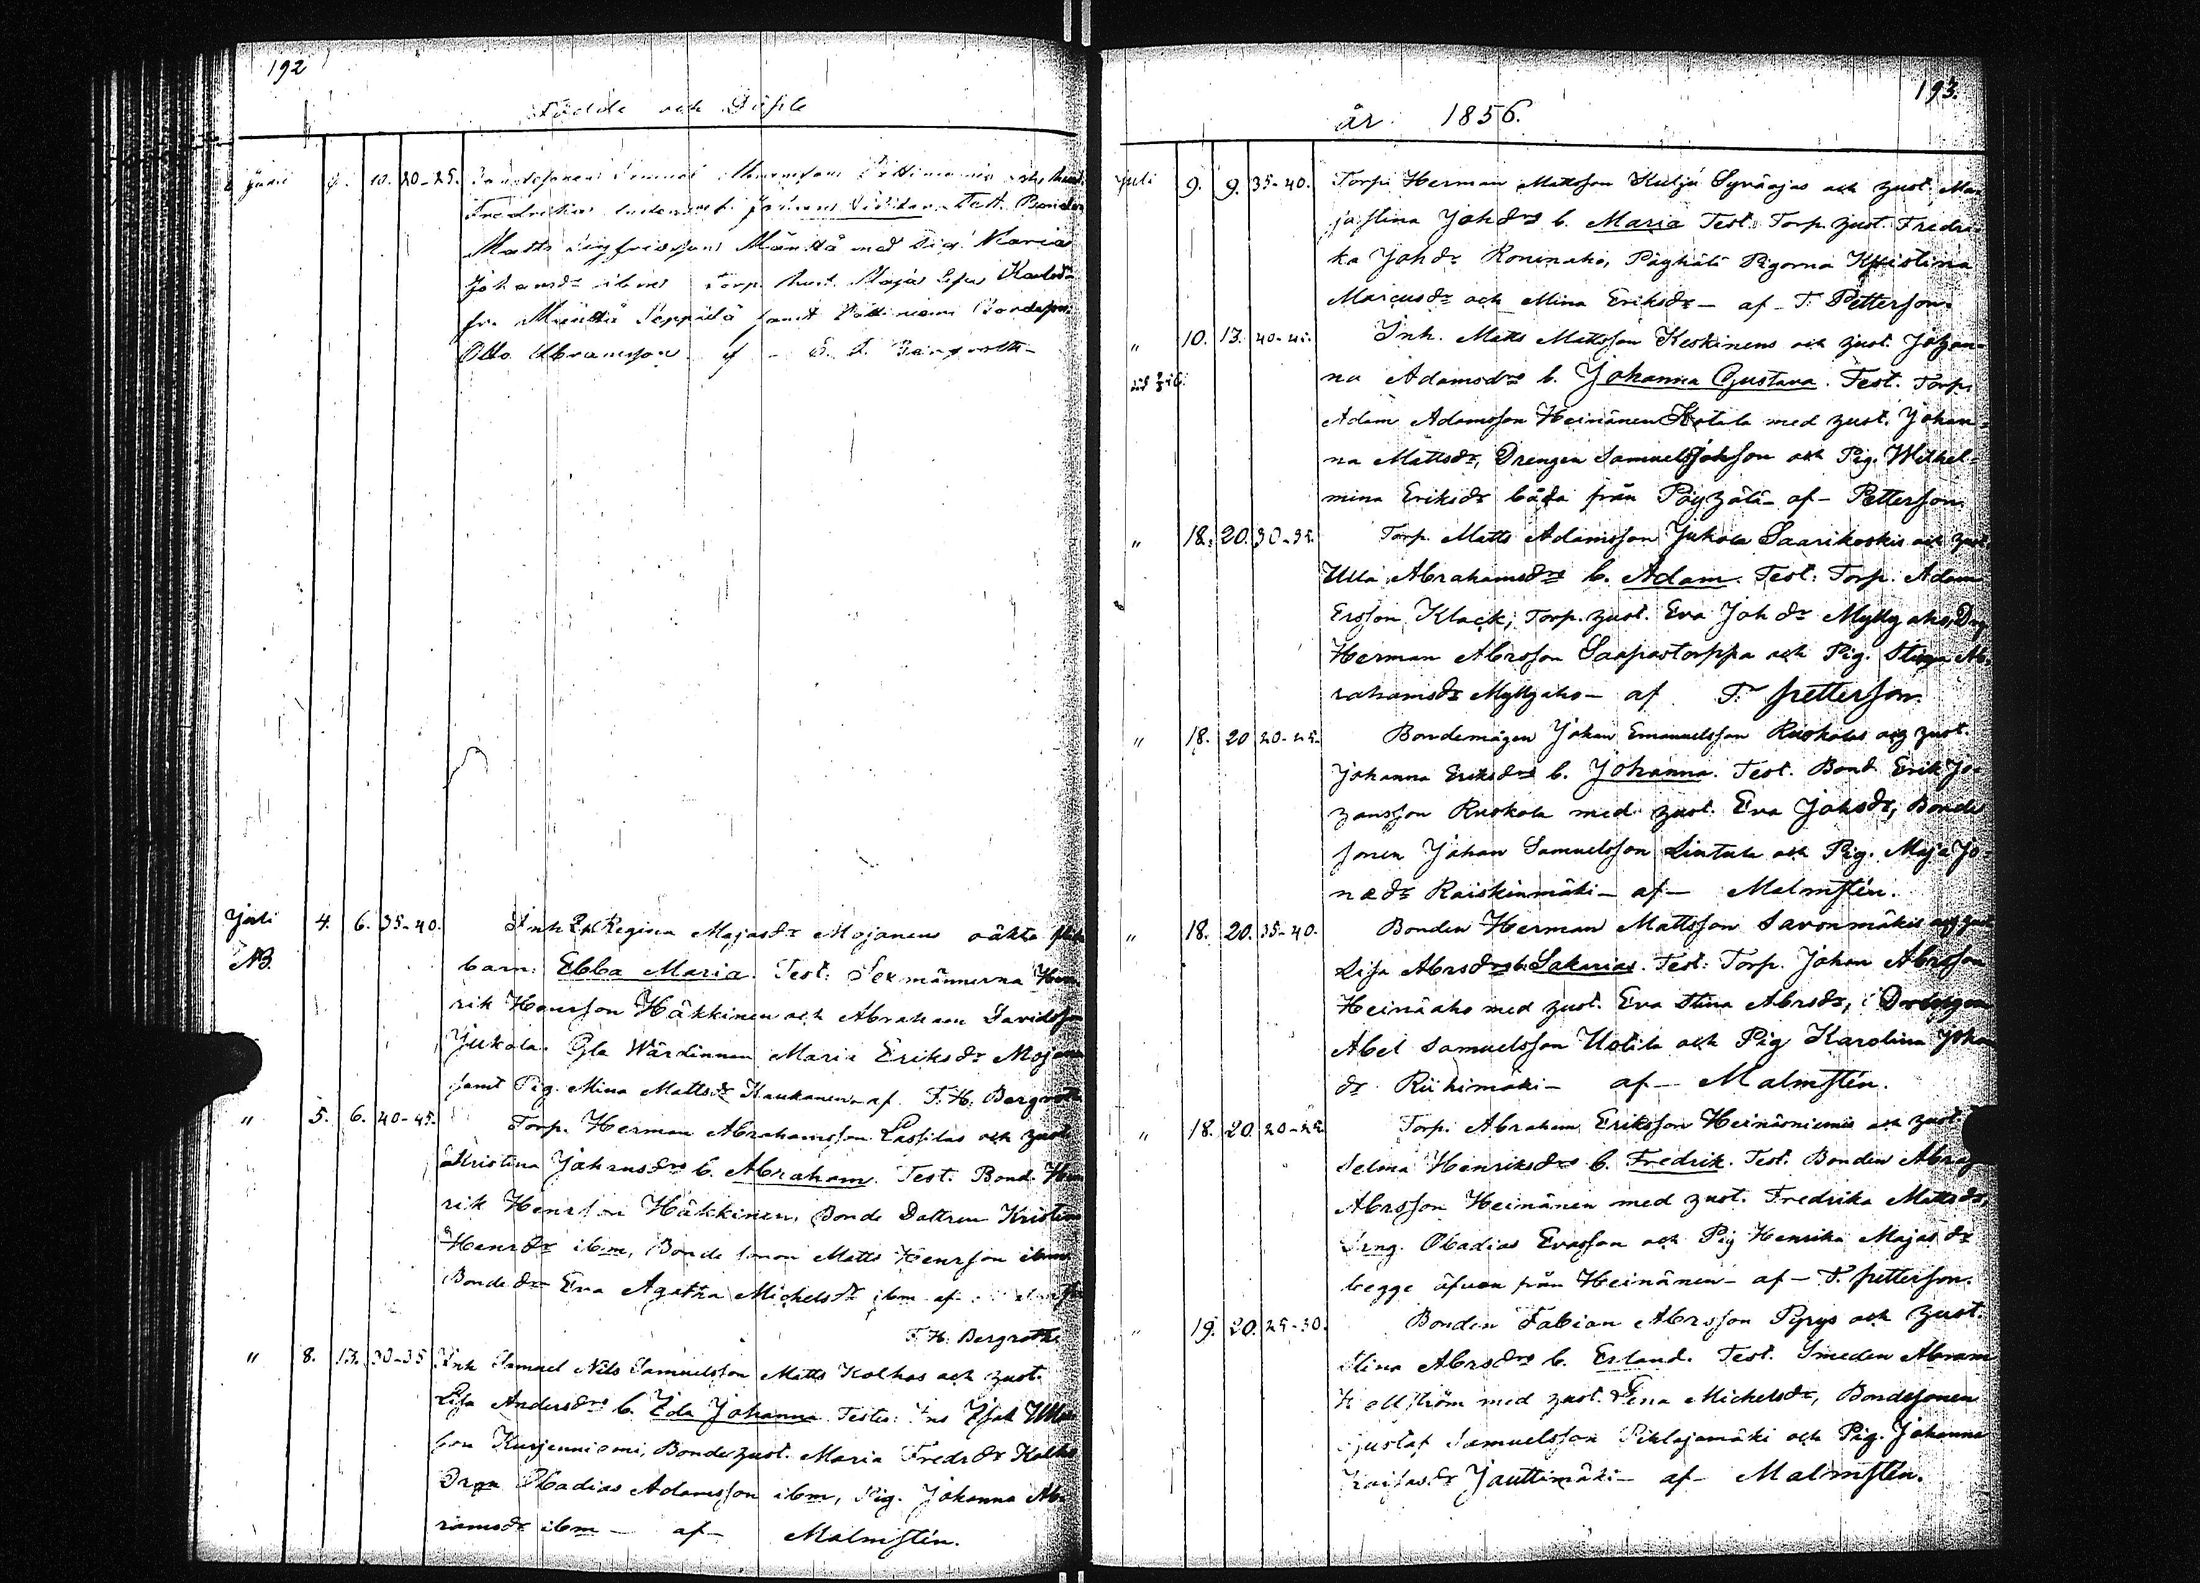 192
Födde och Döpte
Junii 10. 20-25.
Test.
Matts Sigfridsson Mänttä med Maria
ibm Torp. Hust. Maja Karlsdr
Mänttä Seppälä samt Pättiniemi Bondeson
Otto Abramsson af
Juli 4. 6. 35-40. Inh Regina Majasdr Mojanens oäkta
NB. barn: Ebba Maria. Test: Sexmännerna Hen-
rik Henrsson Häkkinen och Abraham Davidsson
Jukola. Gla Wärdinnan Maria Eriksdr Mojanen
samt Pig. Mina Mattsdr Kaukanen af F. H. Bergroth
" 5. 6. 40-45. Torp. Herman Abrahamsson Lassilas och hust
Kristina Johansdrs b. Abraham. Test. Bond. Hen
rik Henrsson Häkkinen, Bonde Dottren Kristina
Henrsdr ibm, Bonde sonon Matts Henrsson ibm
Bondedr Eva Agatha Michelsdr ibm af
F. H. Bergroth
" 8. 13. 30-35 Inh Samuel Nils Samuelsson Matts Kolhos och hust.
Lisa Andersdrs b. Ida Johanna Testes: Isak
son Kurjenniemi, Bondehust. Maria Fredrdr Kolho
Obadias Adamsson ibm, Pig. Johanna Ab-
ramsdr ibm - af - Malmstén.
år 1856.
193.
Juli 9. 9. 35-40. Torp. Herman Mattsson Kulju Syväojas och hust. Mar
ja Stina Johdrs b. Maria Test. Torp. hust. Fredri-
ka Johdr Koninaho, Pöyhälä Pigorna Kristina
Marcusdr och Mina Eriksdr - af - F. Petterson.
" 10. 13. 40-45. Inh. Matts Mattsson Keskinens och hust. Johan-
na Adamsdrs b. Johanna Gustava. Test. Torp.
Adam Adamsson Heinänen Kotala med hust. Johan-
na Mattsdr, Drengen Samuel Johsson och Pig. Wilhel-
mina Eriksdr båda från Pöyhälä - af - Petterson.
" 18. 20. 30-35. Torp. Matts Adamsson Jukola Saarikoskis och hust.
Ulla Abrahamsdrs b. Adam. Test: Torp. Adam
Ersson Klack, Torp. hust. Eva Johdr Myllyaho, Drg
Herman Abrsson Saapastorppa och Pig. Stina Ab-
rahamsdr Myllyaho - af F. Petterson.
" 18. 20 20-25. Bondemågen Johan Emanuelsson Ruokolas och hust.
Johanna Eriksdrs b. Johanna. Test. Bond. Erik Jo-
hansson Ruokola med hust. Eva Johsdr, Bonde
sonen Johan Samuelsson Lintula och Pig. Maja Jo-
nasdr Raiskinmäki - af - Malmstén.
" 18. 20. 35-40. Bonden Herman Mattsson Savonmäkis och hust
Lisa Abrsdrs b. Sakarias. Test: Torp. Johan Abrsson
Heinäaho med hust. Eva Stina Abrsdr,
Abel Samuelsson Uotila och Pig Karolina Johan
dr Riihimäki - af - Malmstén.
" 18. 20 20-25 Torp. Abraham Eriksson Heinäniemis och hust.
Selma Henriksdrs b. Fredrik. Test. Bonden Abrah
Abrsson Heinänen med hust. Fredrika Mattsdr,
Drng. Obadias Evasson och Pig Henrika Majasdr
begge äfven från Heinänen - af - F. Petterson.
" 19. 20. 25-30. Bonden Fabian Abrsson Pyrys och hust.
Stina Abrsdrs b. Erland. Test. Smeden Abram
Hellström med hust. Lena Michelsdr, Bondesonen
Gustaf Samuelsson Pihlajamäki och Pig. Johanna
Kaisasdr Jauttimäki - af - Malmstén.